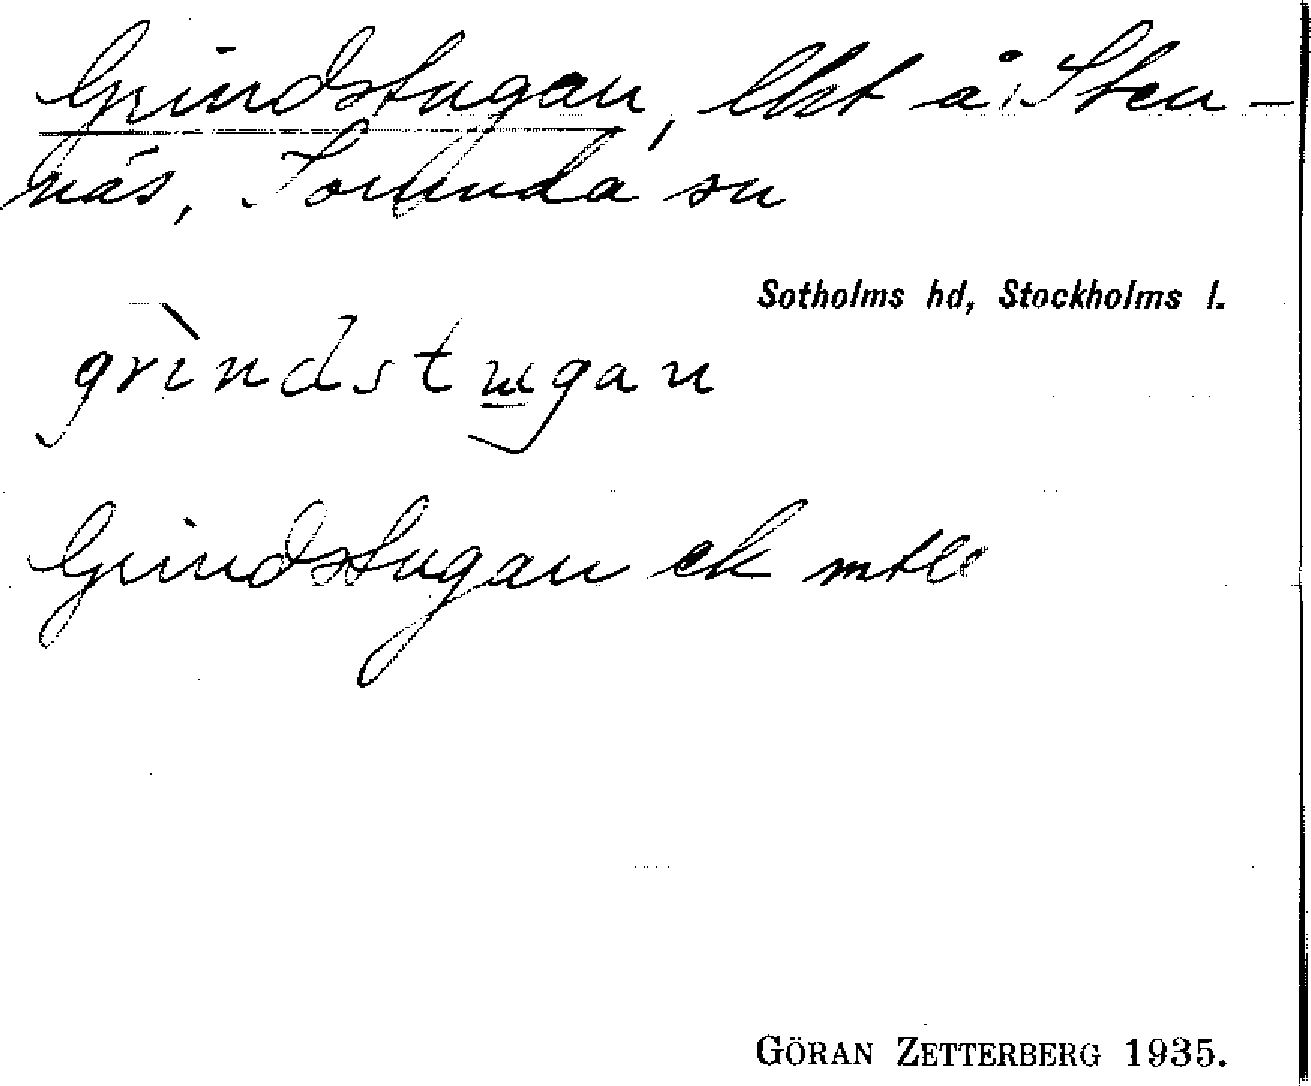 Grindstugan, lht å Sten-
näs, Sorunda sn
Sotholms hd, Stockholms l.
grìndstu̲gan
Grindstugan ek
GÖRAN ZETTERBERG 1935.